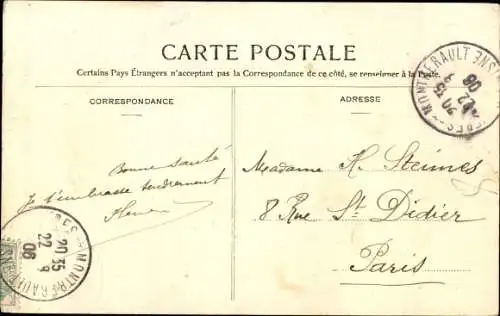 CARTE POSTALE
Certains Pays Étrangers n'acceptant pas la Correspondance de ce côté, se renseigner à la Poste.
CORRESPONDANCE
ADRESSE
Bonne santé
Je t'embrasse tendrement
Madame H. Steimes
8 Rue St Didier
Paris
MONTHERAULT
20 35
22
06
MONTHERAU
20 35
22 9
06